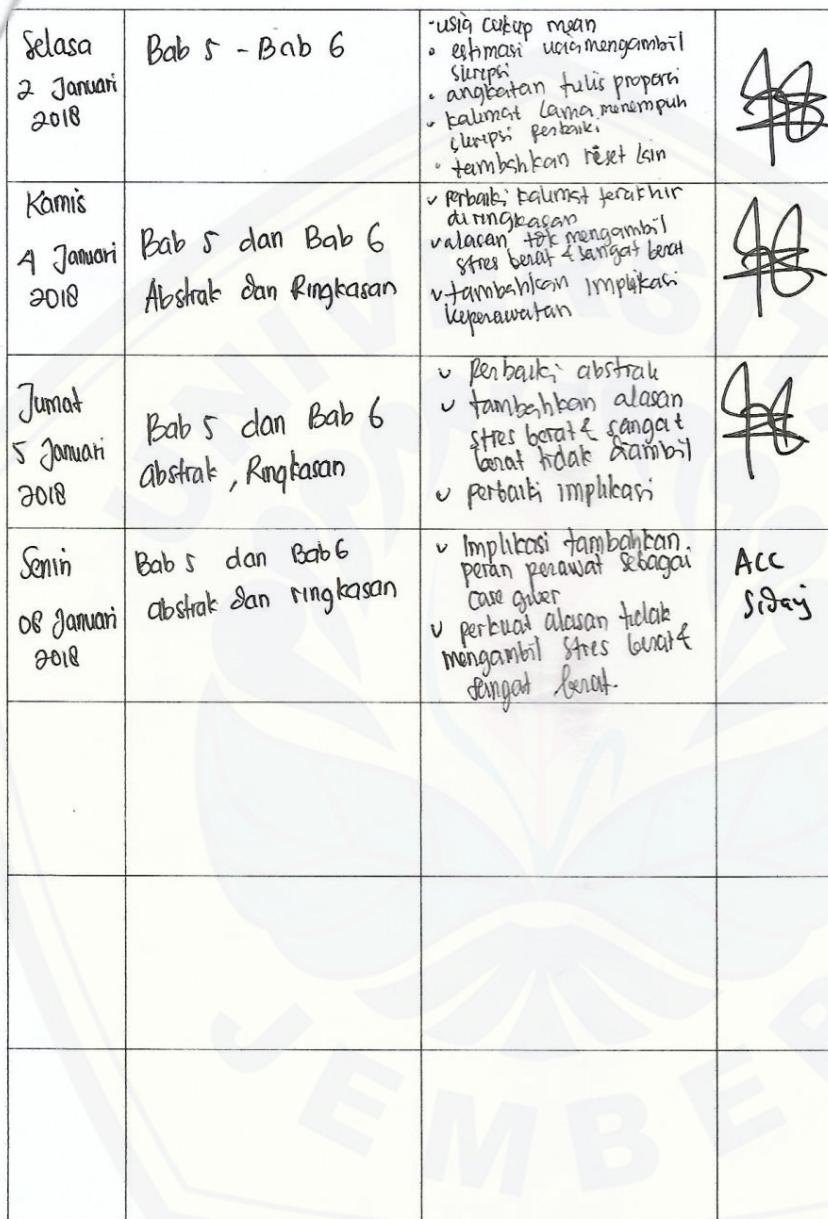 Selasa
2 Januari
2018
Bab 5 - Bab 6
-usia cukup mean
• estimasi usia mengambil
skripsi
• angkatan tulis proporsi
• kalimat lama menempuh
skripsi perbaiki
• tambahkan riset lain
Kamis
4 Januari
2018
Bab 5 dan Bab 6
Abstrak dan Ringkasan
v perbaiki kalimat terakhir
diringkasan
v alasan tdk mengambil
stres berat & sangat berat
v tambahkan implikasi
keperawatan
Jumat
5 Januari
2018
Bab 5 dan Bab 6
abstrak, Ringkasan
v Perbaiki abstrak
v tambahkan alasan
stres berat & sangat
berat tidak diambil
v perbaiki implikasi
Senin
08 Januari
2018
Bab 5 dan Bab 6
abstrak dan ringkasan
v Implikasi tambahkan
peran perawat sebagai
case giver
v perkuat alasan tidak
mengambil stres berat &
sangat berat.
ACC
Sidang
UNIVERSIT
JEMBE